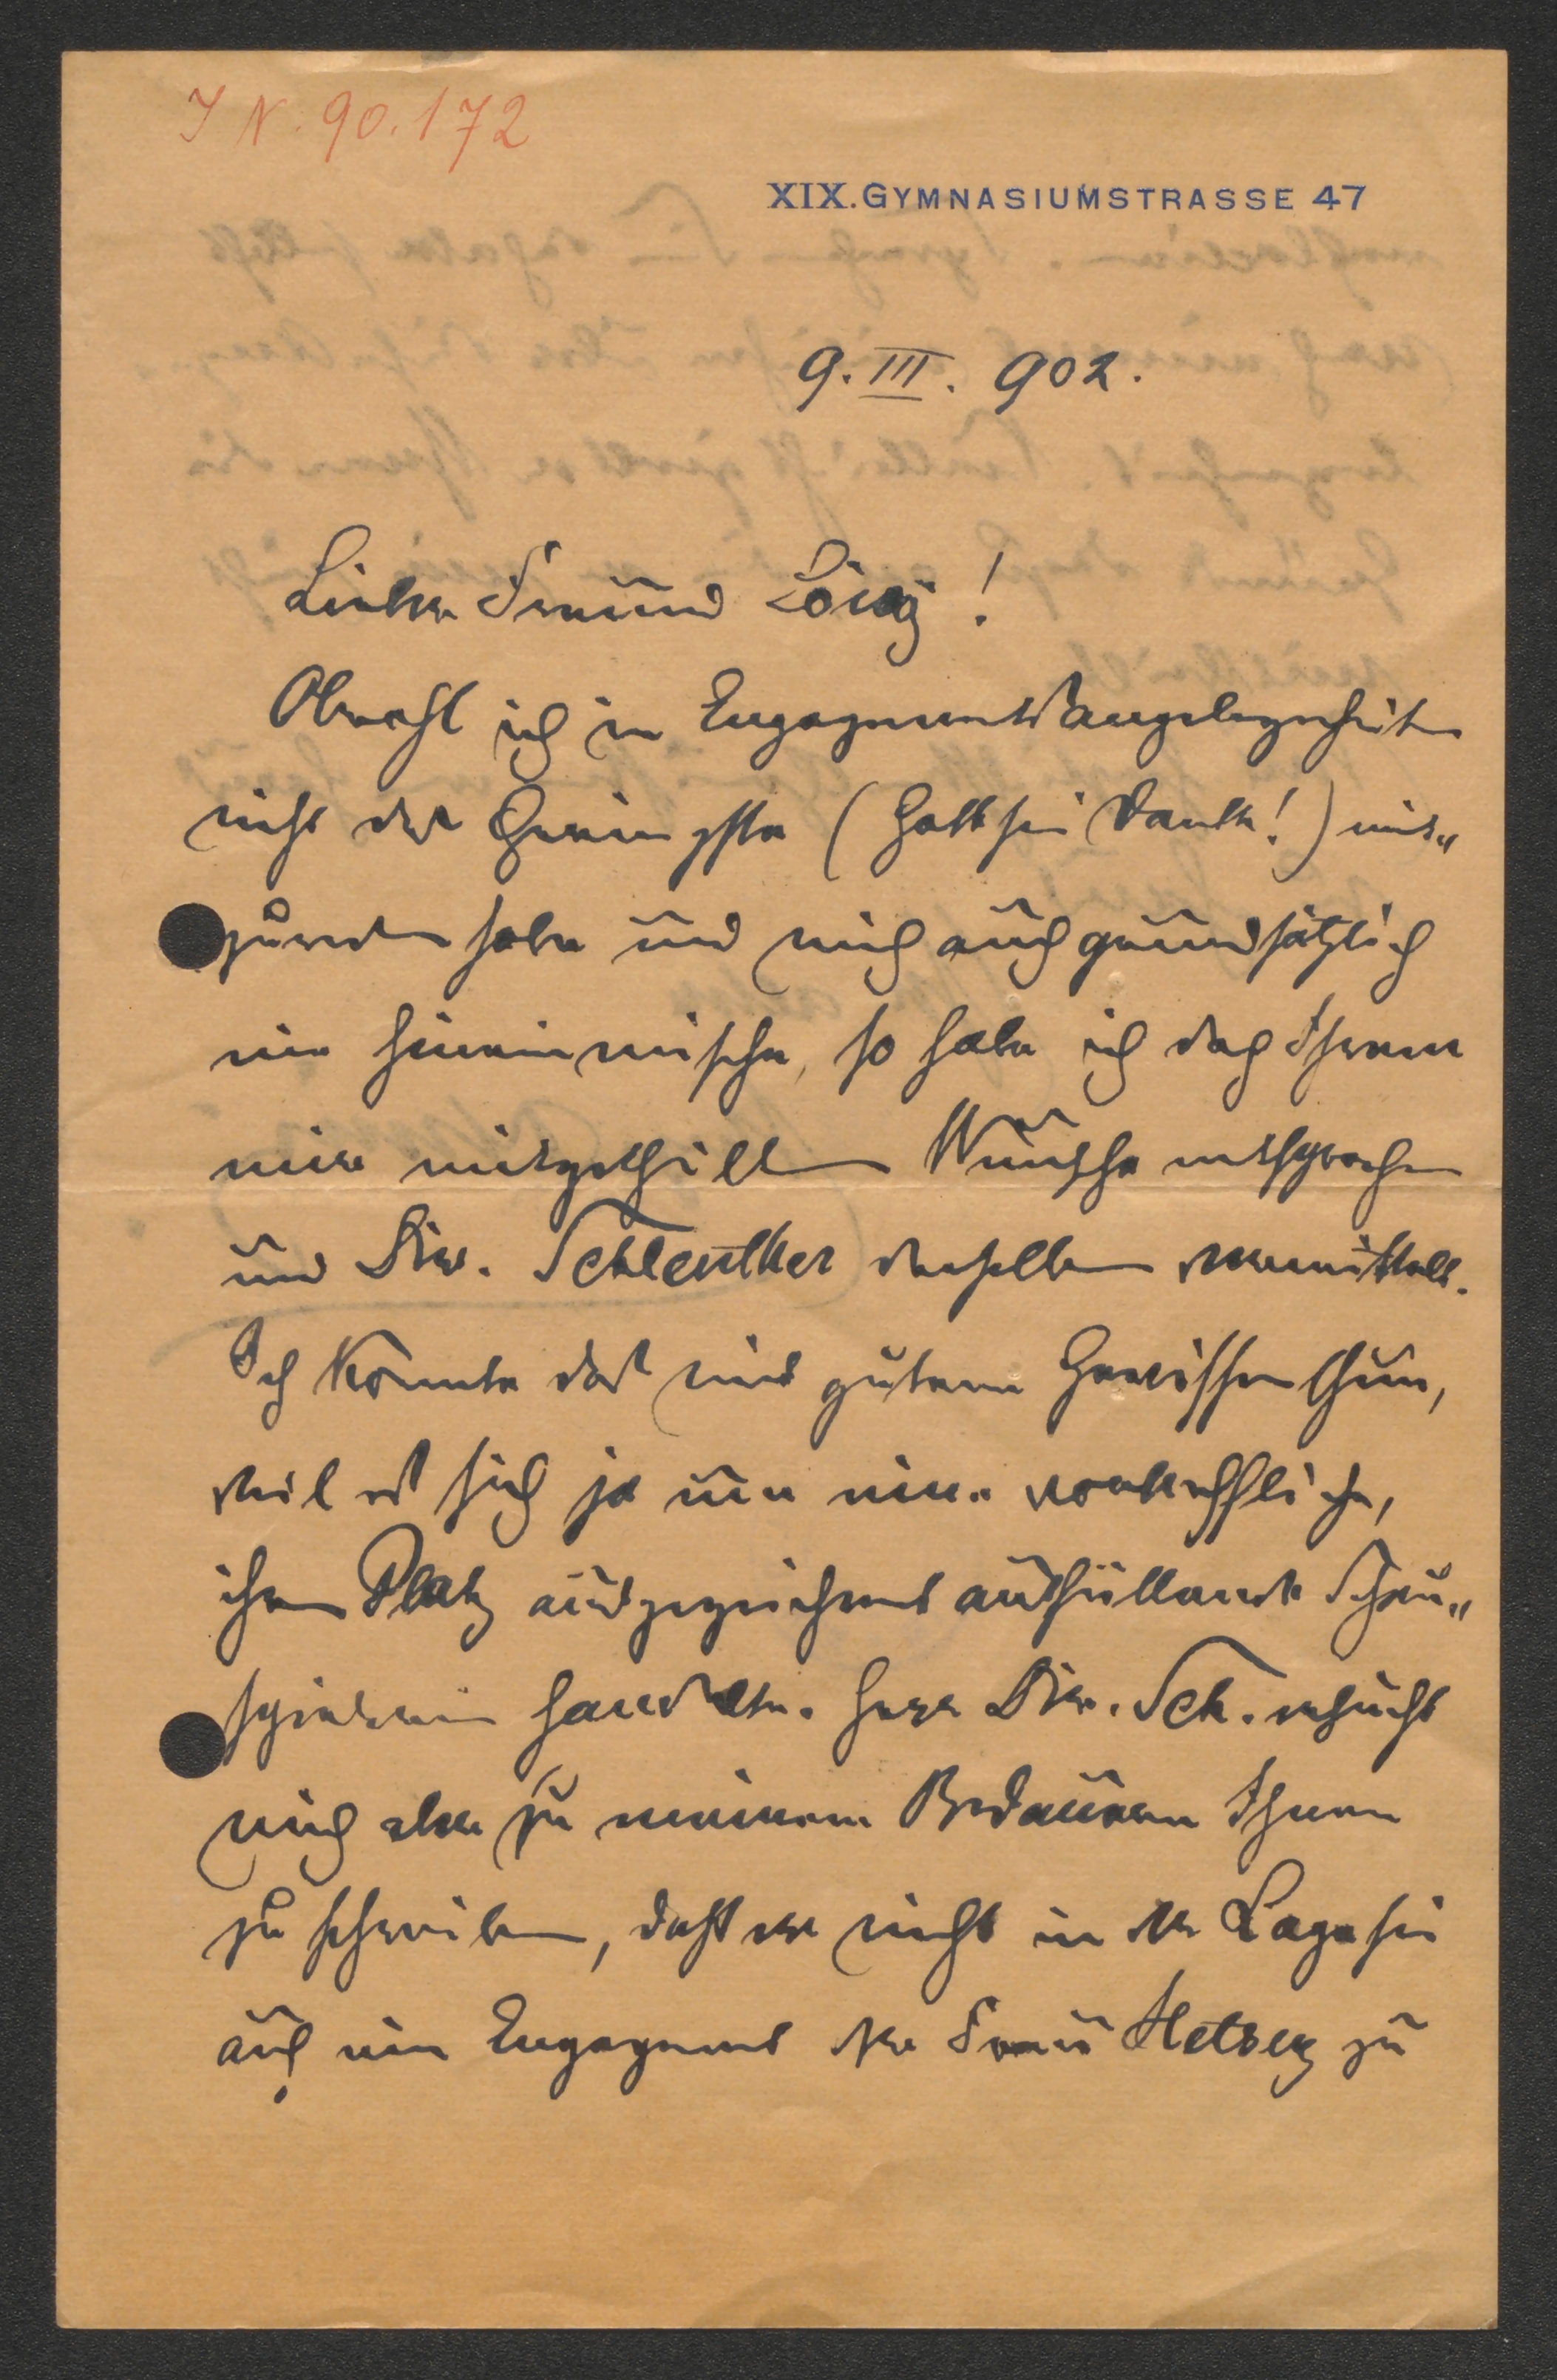 I N. 90.172
XIX. GYMNASIUMSTRASSE 47
9. III. 902.
Lieber Freund Löwy!
Obwohl ich in Engagementsangelegenheiten
nicht das Geringste (Gott sei Dank!) mit„
zureden habe und mich auch grundsätzlich
nie hineinmische, so habe ich doch Ihrem
mir mitgetheilten Wunsche entsprochen
und Dir. Schlenther denselben vermittelt.
Ich konnte das mit gutem Gewissen thun,
weil es sich ja um eine vortreffliche,
ihren Platz ausgezeichnet ausfüllende Schau„
spielerin handelte. Herr Dir. Sch. ersucht
mich aber zu meinem Bedauern Ihnen
zu schreiben, dass er nicht in der Lage sei
auf ein Engagement der Frau Hetsey zu